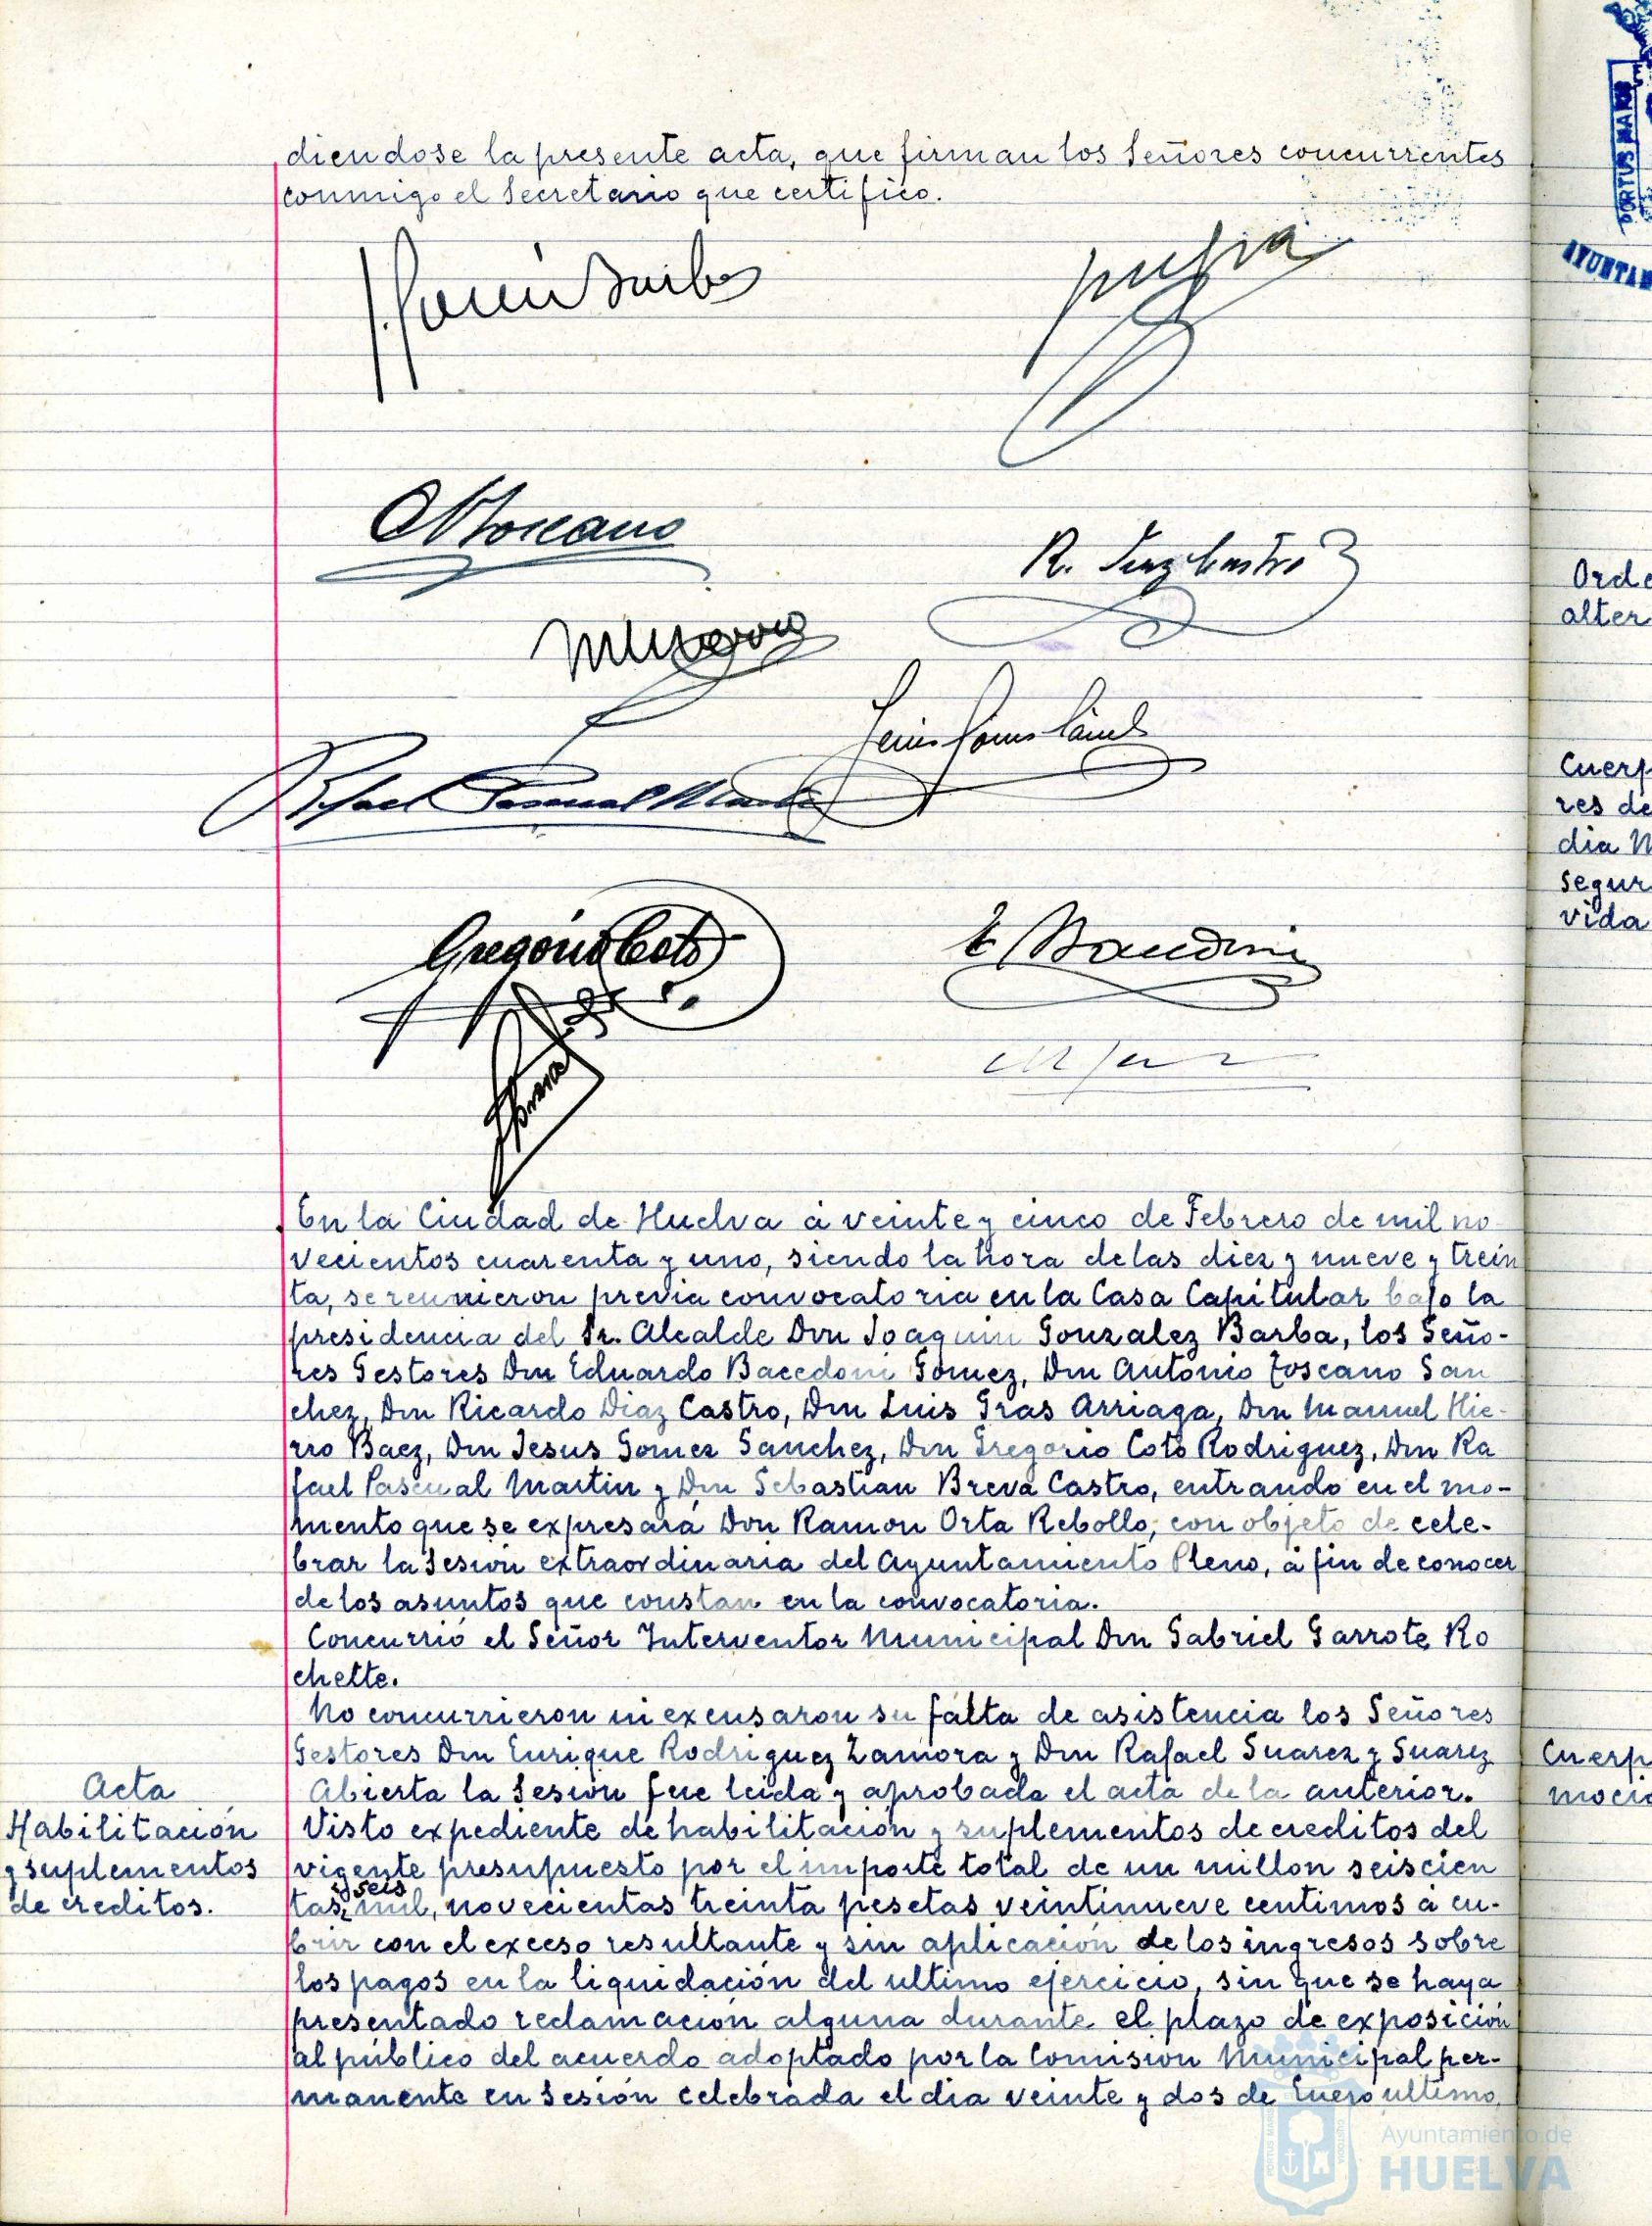 diendose la presente acta, que firman los Señores concurrentes
conmigo el Secretario que certifico.
R. Diaz Castro
Rafael Pascual Martin
Gregorio Coto
En la Ciudad de Huelva á veinte y cinco de Febrero de mil no-
vecientos cuarenta y uno, siendo la hora de las diez y nueve y trein
ta, se reunieron previa convocatoria en la Casa Capitular bajo la
presidencia del Sr. Alcalde Don Joaquin Gonzalez Barba, los Seño-
res Gestores Don Eduardo Bacedoni Gomez, Don Antonio Toscano San
chez, Don Ricardo Diaz Castro, Don Luis Gras Arriaga, Don Manuel Hie-
rro Baez, Don Jesus Gomez Sanchez, Don Gregorio Coto Rodriguez, Don Ra
fael Pascual Martin y Don Sebastian Breva Castro, entrando en el mo-
mento que se expresará Don Ramon Orta Rebollo, con objeto de cele-
brar la Sesión extraordinaria del Ayuntamiento Pleno, á fin de conocer
de los asuntos que constan en la convocatoria.
Concurrió el Señor Interventor Municipal Don Gabriel Garrote Ro
chette.
No concurrieron ni excusaron su falta de asistencia los Señores
Gestores Don Enrique Rodriguez Zamora y Don Rafael Suarez y Suarez
Acta
Abierta la Sesión fue leida y aprobada el acta de la anterior.
Habilitación
y suplementos
de creditos.
Visto expediente de habilitación y suplementos de creditos del
vigente presupuesto por el importe total de un millon seiscien
y seis
tas mil, novecientas treinta pesetas veintinueve centimos á cu-
brir con el exceso resultante y sin aplicación de los ingresos sobre
los pagos en la liquidación del ultimo ejercicio, sin que se haya
presentado reclamación alguna durante el plazo de exposición
al público del acuerdo adoptado por la Comisión Municipal per-
manente en Sesión celebrada el dia veinte y dos de Enero ultimo,
PORTUS MARIS
Orde
alter
Cuerp
res de
dia M
segur
vida
Cuerp
moció
Ayuntamiento de
HUELVA